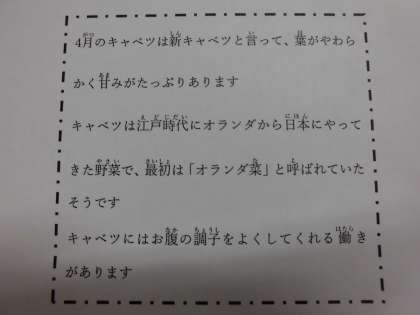 4月のキャベツは新キャベツと言って、葉がやわら
かく甘みがたっぷりあります
キャベツは江戸時代にオランダから日本にやって
きた野菜で、最初は「オランダ菜」と呼ばれていた
そうです
キャベツにはお腹の調子をよくしてくれる働き
があります